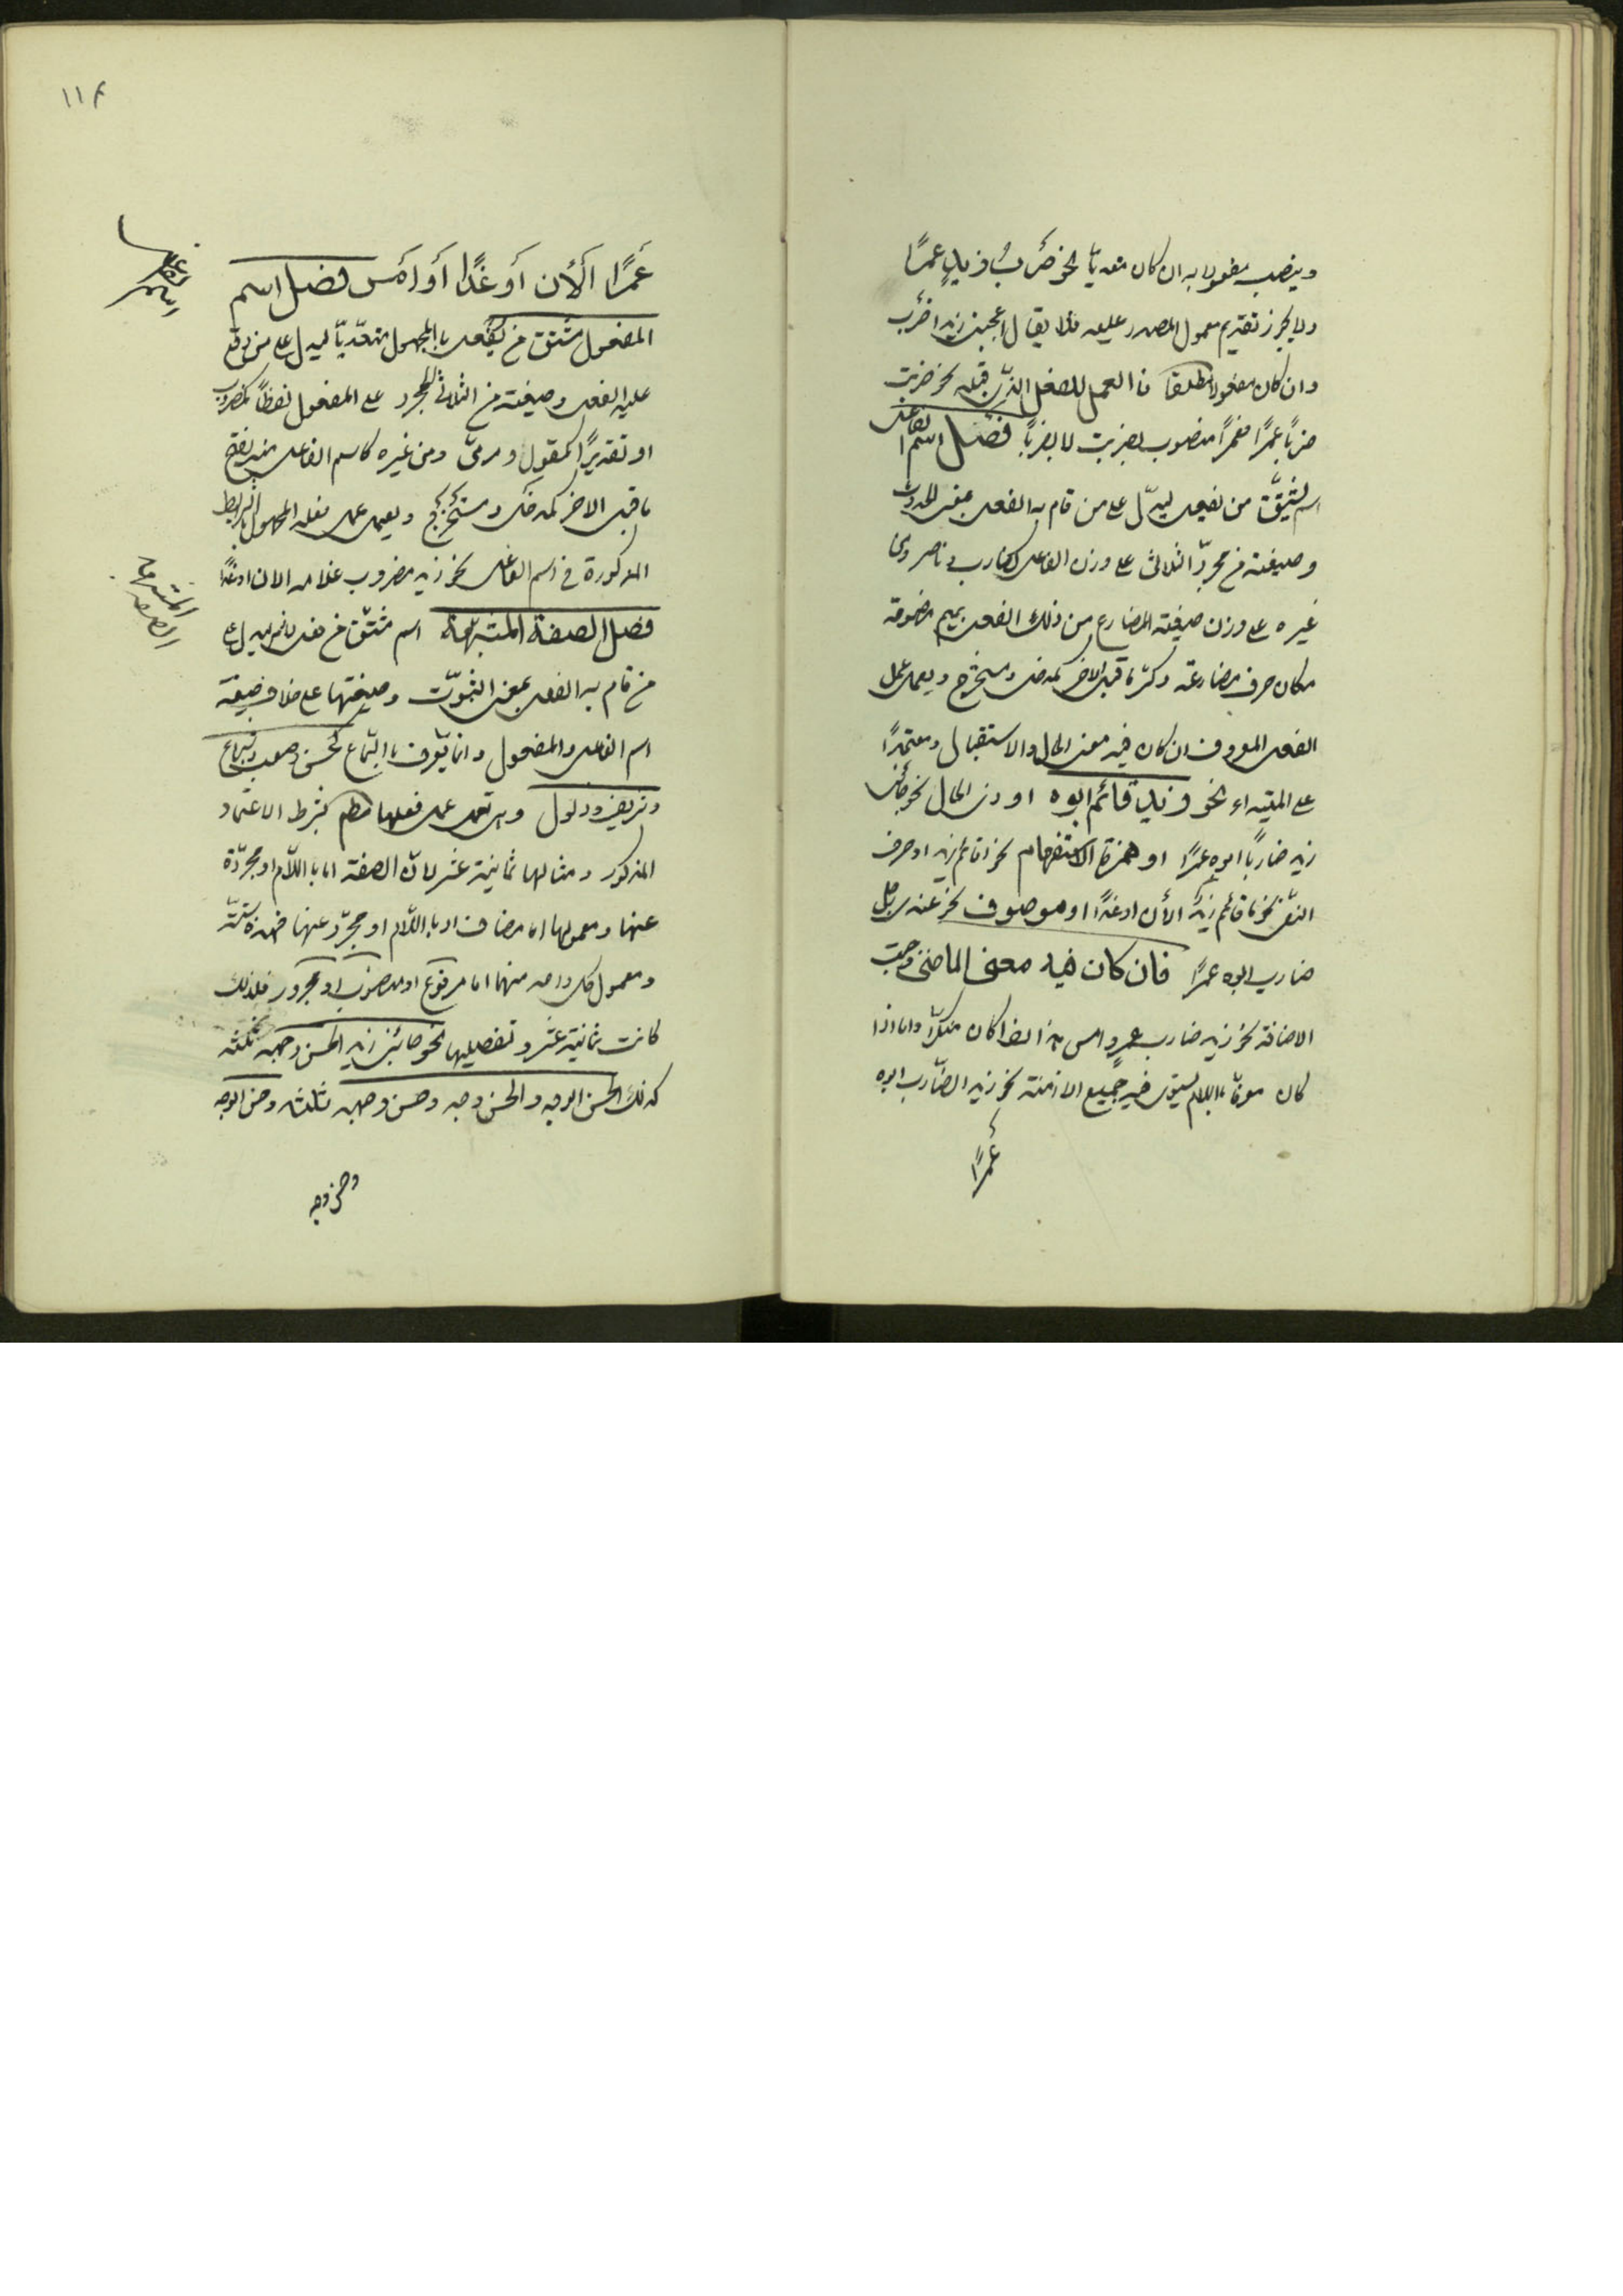 وينصب مفعولا به ان كان متعديا نحو ضرب زيد عمرًا
ولا يجوز تقديم معمول المصدر عليه فلا يقال اعجبنى زيدا ضرب
وان كان مفعولا مطلقا فالعمل للفعل الذى قبله نحو ضربت
ضربًا عمرًا فعمرًا منصوب بضربت لا بضربًا فصل اسم الفاعل
اسم يشتق من يفعل ليدلّ على من قام به الفعل بمعنى الحدوث
وصيغته من مجرد الثلاثى على وزن الفاعل كضارب وناصر ومن
غيره على وزن صيغة المضارع من ذلك الفعل بميم مضمومة
مكان حرف مضارعة وكسر ما قبل الاخر كمدخل ومستخرج ويعمل عمل
الفعل المعروف ان كان فيه معنى الحال والاستقبال ومعتمدًا
على المبتداء نحو زيد قائم ابوه او ذى الحال نحو جائنى
زيد ضاربًا ابوه عمرًا او همزة الاستفهام نحو اقائم زيد او حرف
النفى نحو ما قائم زيد الأن او غدًا او موصوف نحو عندى رجل
ضارب ابوه عمرًا فان كان فيه معنى الماضى وجبت
الاضافة نحو زيد ضارب عمرٍو امس هذا اذا كان منكرًا واما اذا
كان معرفًا باللام يستوى فيه جميع الازمنة نحو زيد الضارب ابوه
عمرًا
١١٤
عمرًا الأن أو غدًا أو امس فصل اسم
المفعول مشتق من يفعل بالمجهول متعديًا ليدل على من وقع
عليه الفعل وصيغته من الثلاثى المجرد على المفعول لفظًا كمضروب
او تقديرًا كمقول ومرمىّ ومن غيره كاسم الفاعل منه بفتح
ما قبل الاخر كمدخل ومستخرج ويعمل عمل فعله المجهول بالشرايط
المذكورة فى اسم الفاعل نحو زيد مضروب غلامه الان او غدًا
فصل الصفة المشبهة اسم مشتق من فعل لازم ليدل على
من قام به الفعل بمعنى الثبوت وصيغتها على خلاف صيغة
اسم الفاعل والمفعول وانما يعرف بالسماع كحسن وصعب وشجاع
وشريف وذلول وهى تعمل عمل فعلها مطلقا بشرط الاعتماد
المذكور ومثالها ثمانية عشر لان الصفة اما باللام او مجردة
عنها ومعمولها اما مضاف او باللام او مجرد عنها فهذه ستة
ومعمول كل واحد منهما اما مرفوع او منصوب او مجرور فلذلك
كانت ثمانية عشر وتفصيلها نحو جائنى زيد الحسن وجهه ثلثة
كذلك الحسن الوجه والحسن وجه وحسن وجهه ثلثة وحسن الوجه
وحسن وجه
الصفة المشبهة